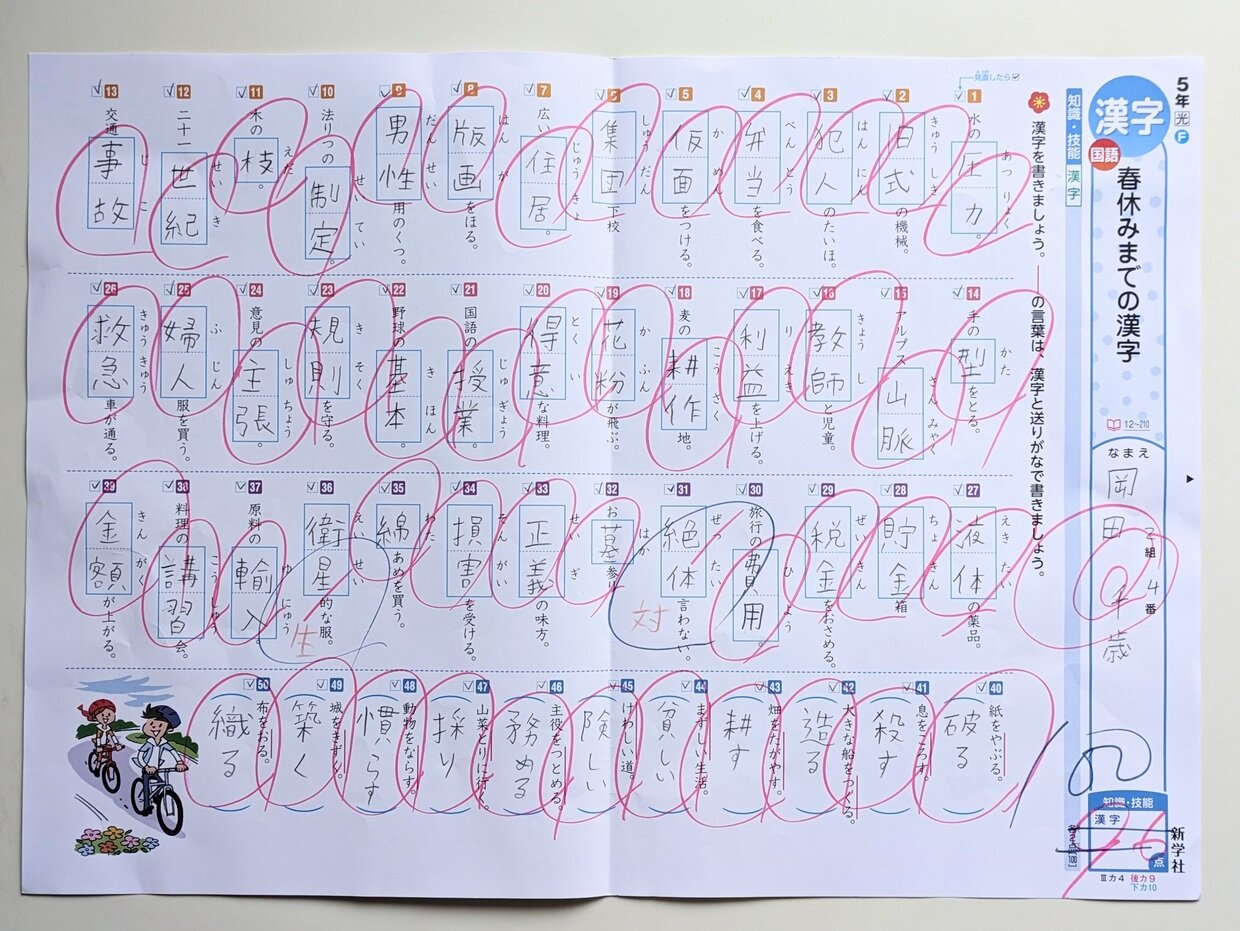 5年 光 F
漢字
国語
春休みまでの漢字
12~210
なまえ
2組 4番
岡田 千歳
知識・技能
漢字
96
点
新学社
各2点【100】
Ⅲカ4 後カ9
下カ10
知識・技能 漢字
漢字を書きましょう。――の言葉は、漢字と送りがなで書きましょう。
見直したら
1 水の圧力。 あつりょく
2 旧式の機械。 きゅうしき
3 犯人のたいほ。 はんにん
4 弁当を食べる。 べんとう
5 仮面をつける。 かめん
6 集団下校 しゅうだん
7 広い住居。 じゅうきょ
8 版画をほる。 はんが
9 男性用のくつ。 だんせい
10 法りつの制定。 せいてい
11 木の枝。 えだ
12 二十一世紀 せいき
13 交通事故 じこ
14 手の型をとる。 かた
15 アルプス山脈 さんみゃく
16 教師と児童。 きょうし
17 利益を上げる。 りえき
18 麦の耕作地。 こうさく
19 花粉が飛ぶ。 かふん
20 得意な料理。 とくい
21 国語の授業。 じゅぎょう
22 野球の基本。 きほん
23 規則を守る。 きそく
24 意見の主張。 しゅちょう
25 婦人服を買う。 ふじん
26 救急車が通る。 きゅうきゅう
27 液体の薬品。 えきたい
28 貯金箱 ちょきん
29 税金をおさめる。 ぜいきん
30 旅行の費用。 ひよう
31 絶体言わない。 ぜったい
対
32 お墓参り はか
33 正義の味方。 せいぎ
34 損害を受ける。 そんがい
35 綿あめを買う。 わた
36 衛星的な服。 えいせい
生
37 原料の輸入 ゆにゅう
38 料理の講習会。 こうしゅう
39 金額が上がる。 きんがく
40 紙をやぶる。
破る
41 息をころす。
殺す
42 大きな船をつくる。
造る
43 畑をたがやす。
耕す
44 まずしい生活。
貧しい
45 けわしい道。
険しい
46 主役をつとめる。
務める
47 山菜とりに行く。
採り
48 動物をならす。
慣らす
49 城をきずく。
築く
50 布をおる。
織る